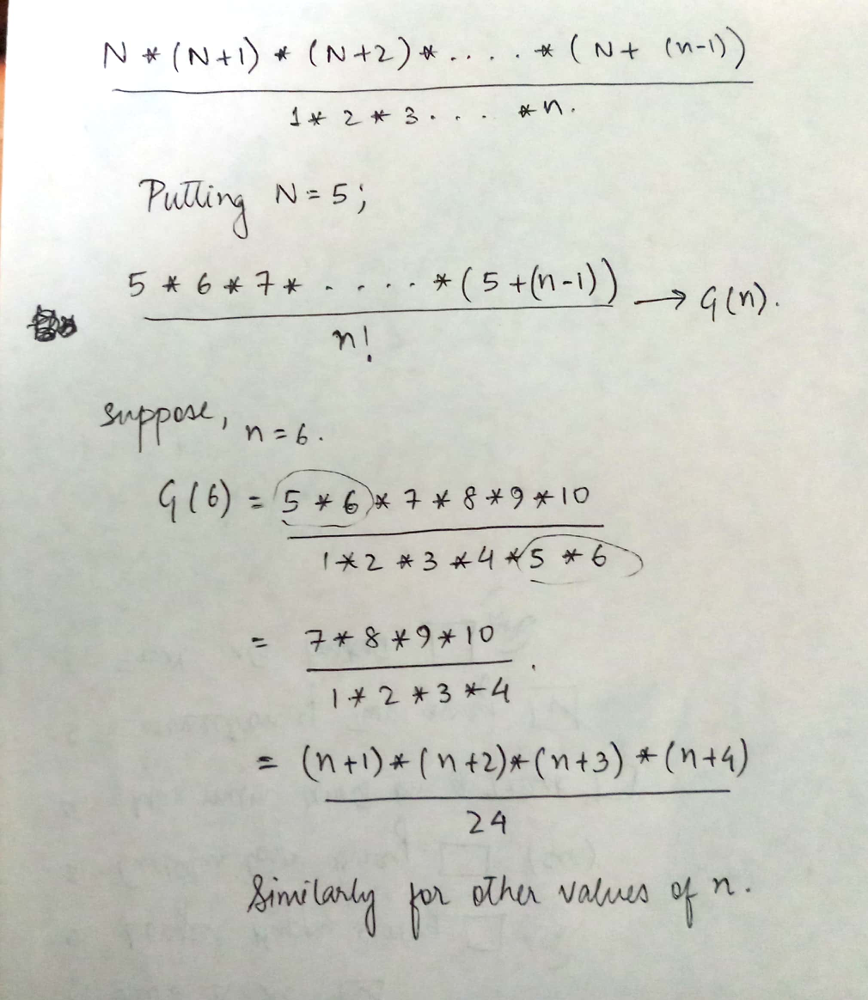 N * (N+1) * (N+2) * ..... * (N + (n-1))
1 * 2 * 3 .... * n.
Putting N = 5;
5 * 6 * 7 * ..... * (5 + (n-1)) → G(n).
n!
suppose, n = 6.
G(6) = 5 * 6 * 7 * 8 * 9 * 10
1 * 2 * 3 * 4 * 5 * 6
= 7 * 8 * 9 * 10
1 * 2 * 3 * 4 .
= (n+1) * (n+2) * (n+3) * (n+4)
24
Similarly for other values of n.